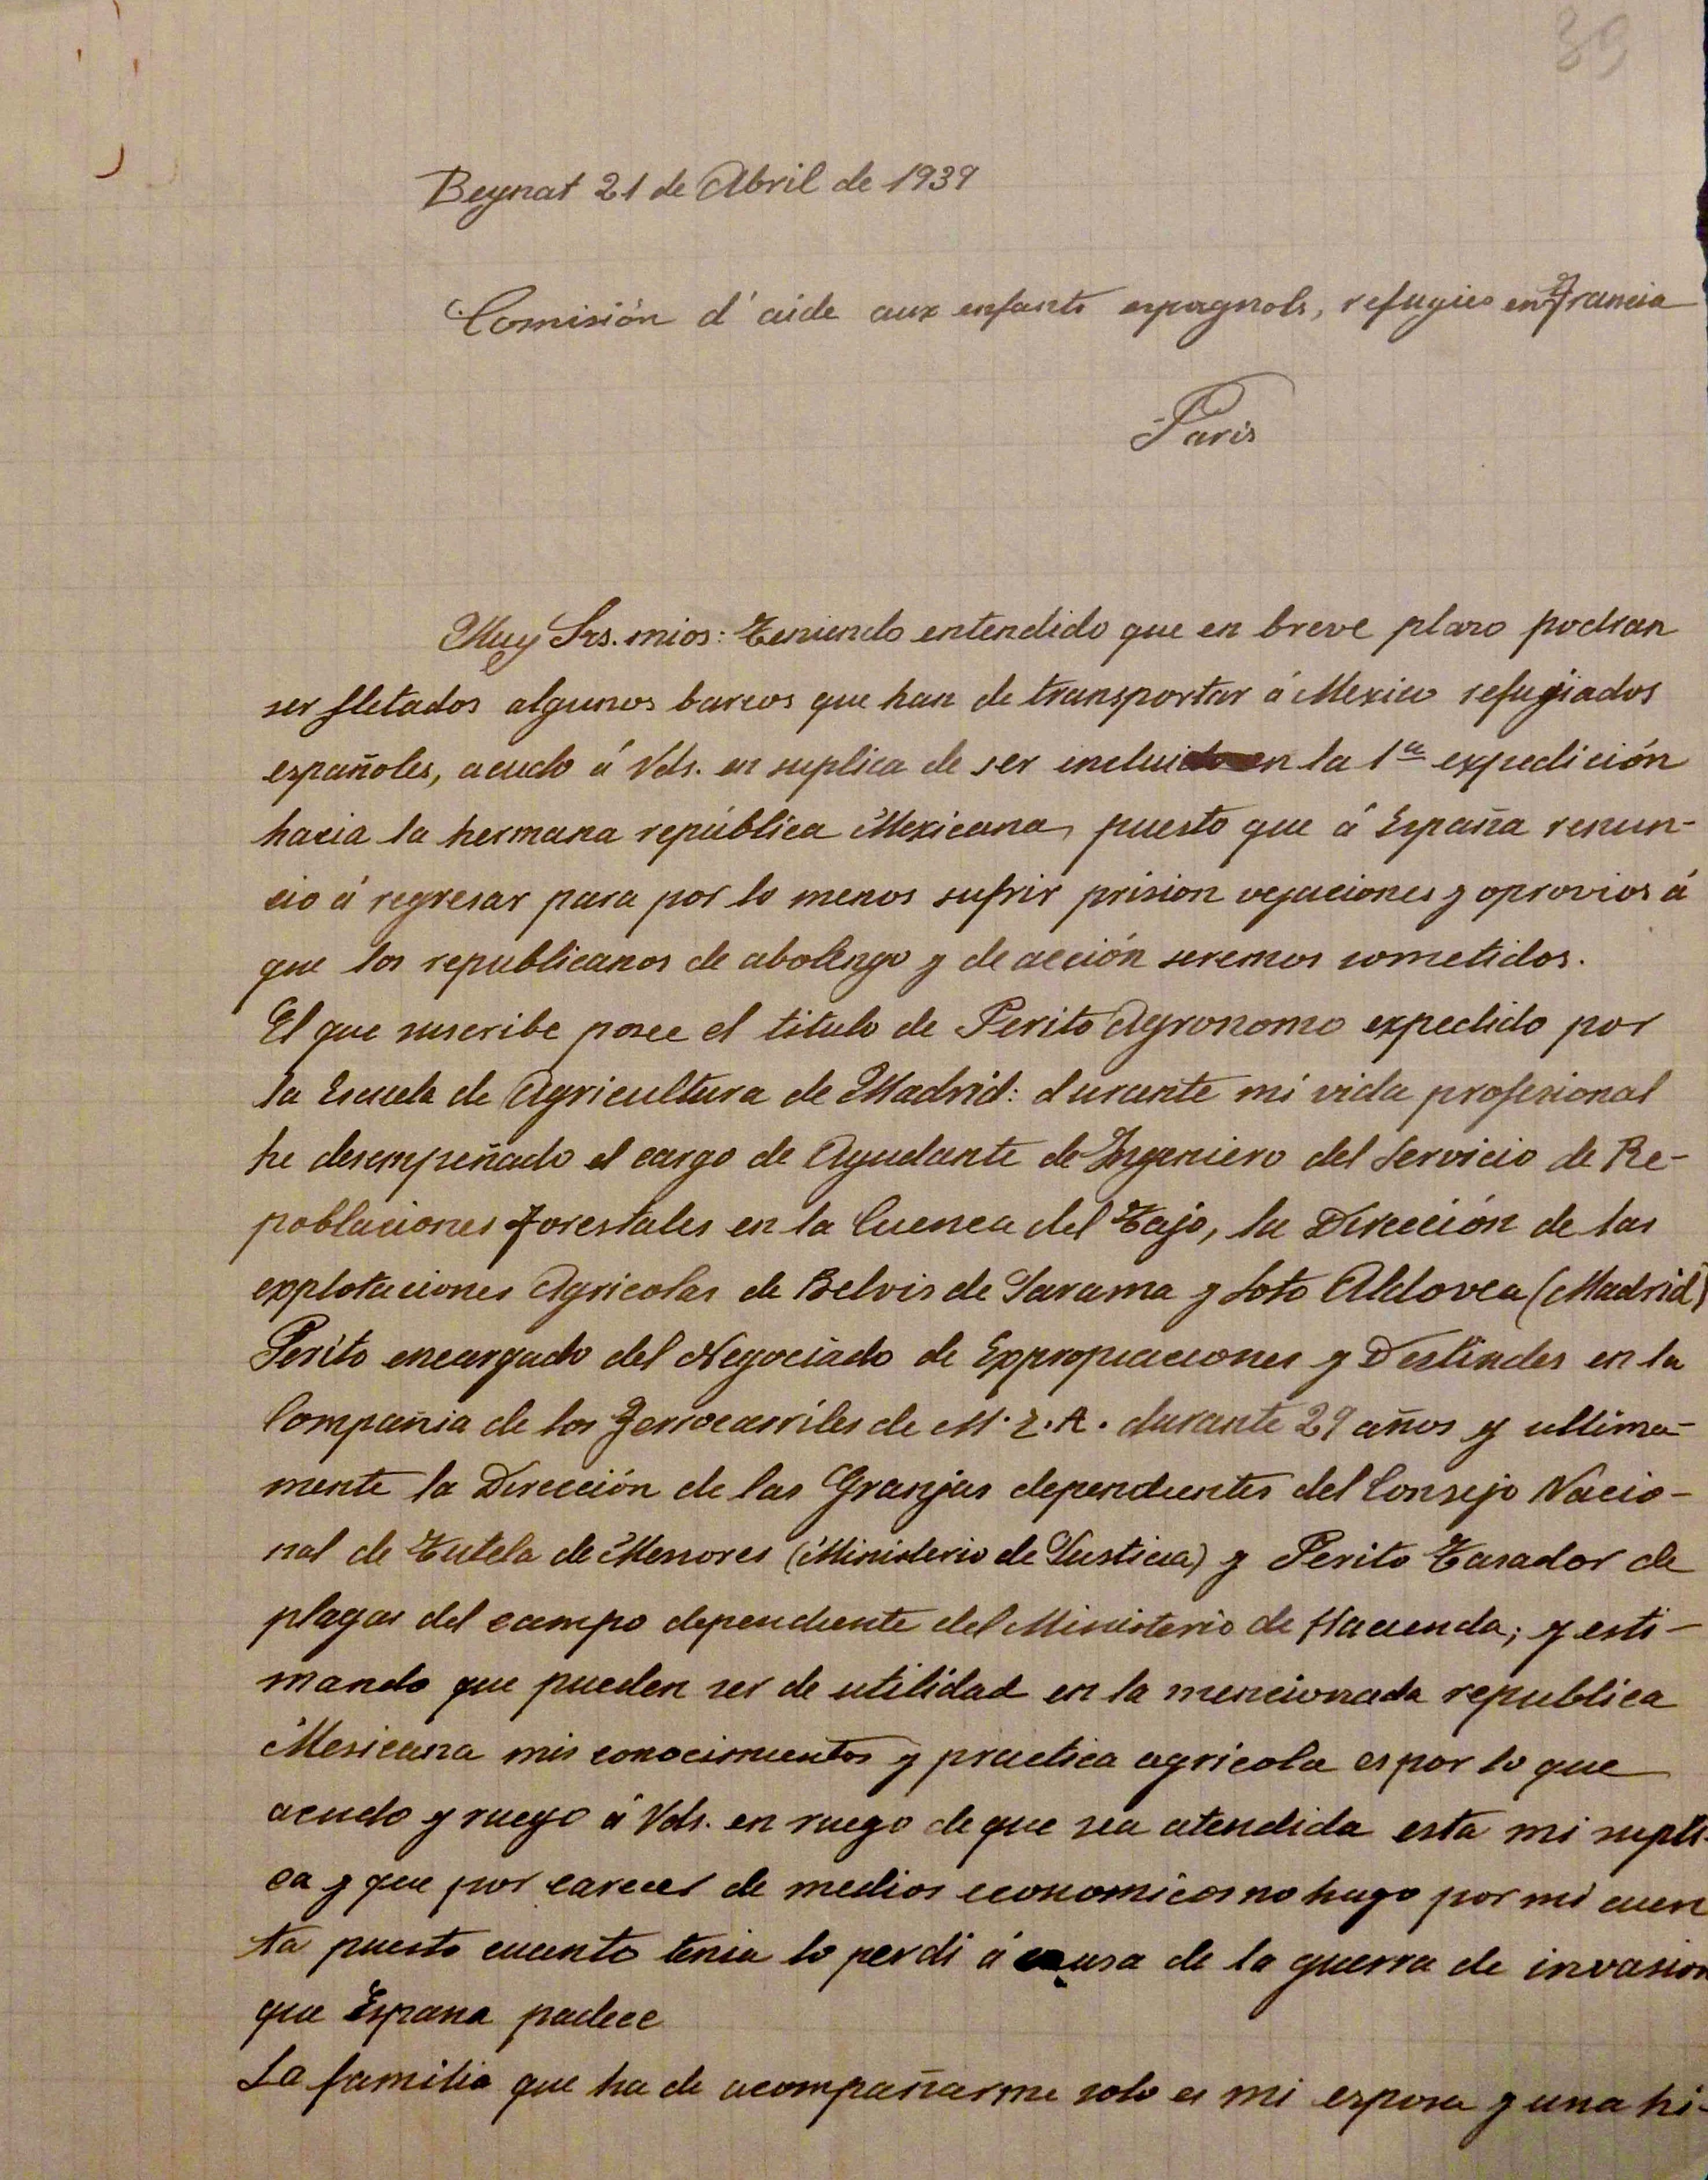 39
Beynat 21 de Abril de 1939
Comisión d'aide aux enfants espagnols, refugies en Francia
Paris
Muy Srs. mios: Teniendo entendido que en breve plazo podran
ser fletados algunos barcos que han de transportar á Mexico refugiados
españoles, acudo á Vds. en suplica de ser incluido en la 1ª expedición
hacia la hermana república Mexicana, puesto que á España renun-
cio á regresar para por lo menos sufrir prision vejaciones y oprovios á
que los republicanos de abolengo y de acción seremos sometidos.
El que suscribe posee el titulo de Perito Agronomo expedido por
la Escuela de Agricultura de Madrid: durante mi vida profesional
he desempeñado el cargo de Ayudante de Ingeniero del Servicio de Re-
poblaciones Forestales en la Cuenca del Tajo, la Dirección de las
explotaciones Agricolas de Belvis de Jarama y Soto Aldovea (Madrid)
Perito encargado del Negociado de Expropiaciones y Deslindes en la
Compañia de los Ferrocarriles de M.Z.A. durante 29 años y ultima-
mente la Dirección de las Granjas dependientes del Consejo Nacio-
nal de Tutela de Menores (Ministerio de Justicia) y Perito Tasador de
plagas del campo dependiente del Ministerio de Hacienda; y esti-
mando que pueden ser de utilidad en la mencionada republica
Mexicana mis conocimientos y practica agricola es por lo que
acudo y ruego á Vds. en ruego de que sea atendida esta mi supli-
ca y que por carecer de medios economicos no hago por mi cuen
ta puesto cuanto tenia lo perdi á causa de la guerra de invasion
que España padece
La familia que ha de acompañarme solo es mi esposa y una hi-